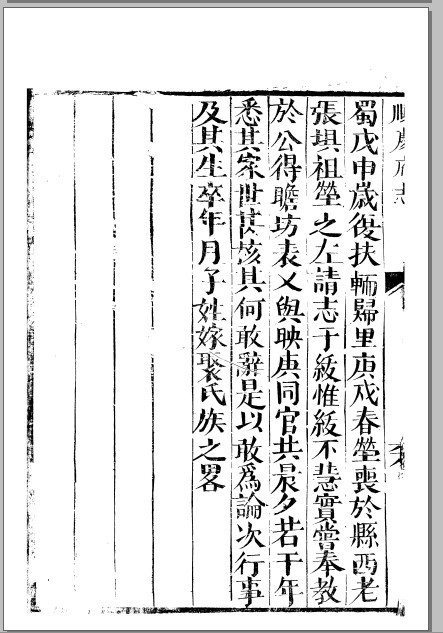 順慶府志
蜀戊申歲復扶輀歸里庚戌春塋喪於縣西老
張垻祖塋之左請志于紱惟紱不慧實嘗奉教
於公得瞻坊表又與映庚同官共晨夕若干年
悉其家世甚該其何敢辭是以敢爲論次行事
及其生卒年月子姓嫁娶氏族之畧